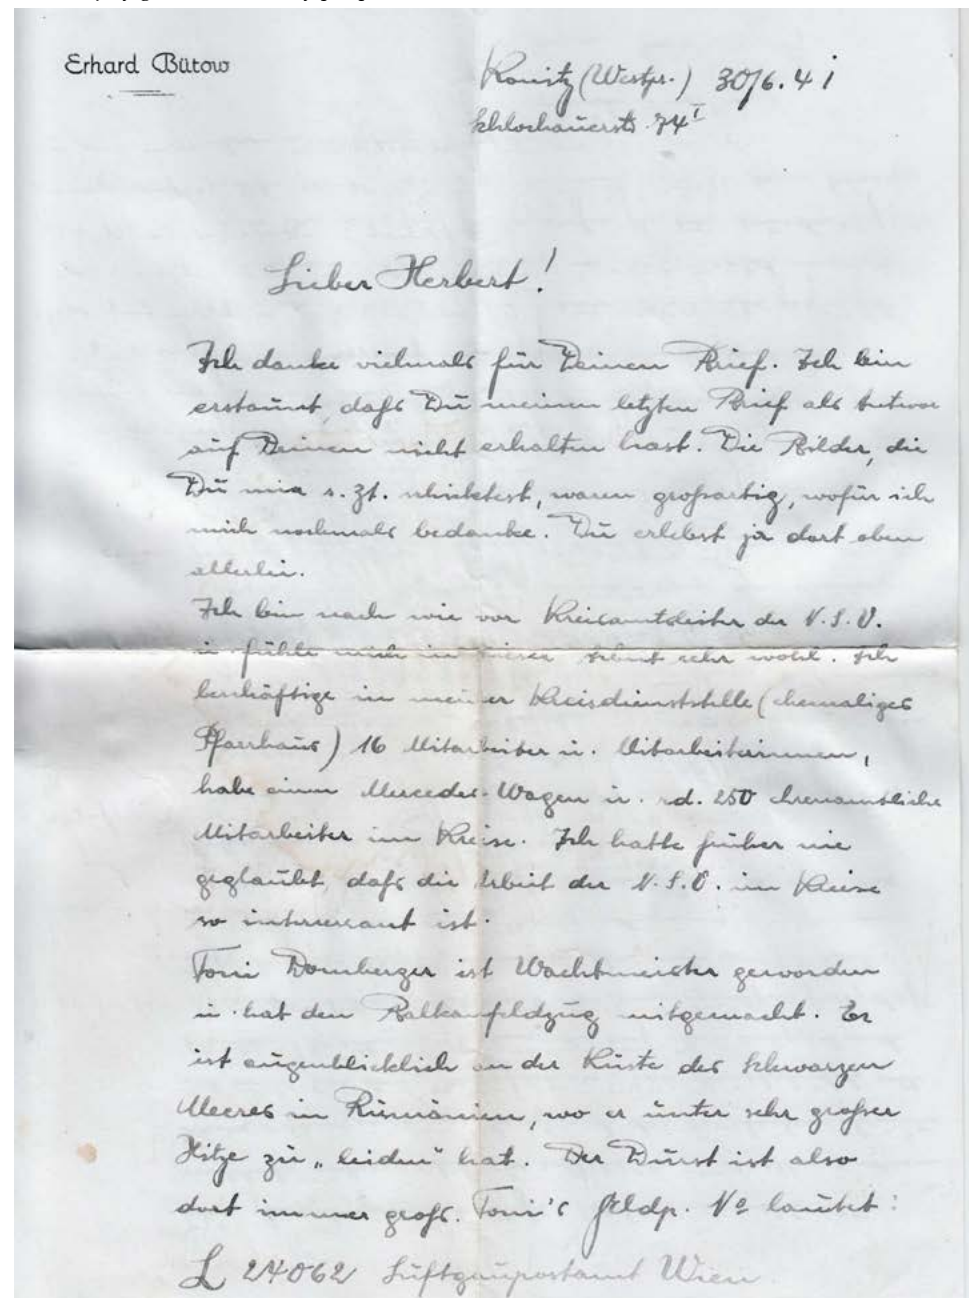 Erhard Bütow
Konitz (Westpr.) 30/6.41
Schlochauerstr. 74 I
Lieber Herbert!
Ich danke vielmals für Deinen Brief. Ich bin
erstaunt, daß Du meinen letzten Brief als Antwor
auf Deinen nicht erhalten hast. Die Bilder, die
Du mir s. Zt. schicktest, waren großartig, wofür ich
mich nochmals bedanke. Du erlebst ja dort oben
allerlei.
Ich bin nach wie vor Kreisamtsleiter der N.S.V.
u. fühle mich in dieser Arbeit sehr wohl. Ich
beschäftige in meiner Kreisdienststelle (ehemaliges
Pfarrhaus) 16 Mitarbeiter u. Mitarbeiterinnen,
habe einen Mercedes-Wagen u. rd. 250 ehrenamtliche
Mitarbeiter im Kreise. Ich hatte früher nie
geglaubt, daß die Arbeit der N.S.V. im Kreise
so interessant ist.
Toni Domberger ist Wachtmeister geworden
u. hat den Balkanfeldzug mitgemacht. Er
ist augenblicklich an der Küste des Schwarzen
Meeres in Rumänien, wo er unter sehr großer
Hitze zu „leiden" hat. Der Durst ist also
dort immer groß. Toni's Feldp. No lautet:
L 24062 Luftgaupostamt Wien